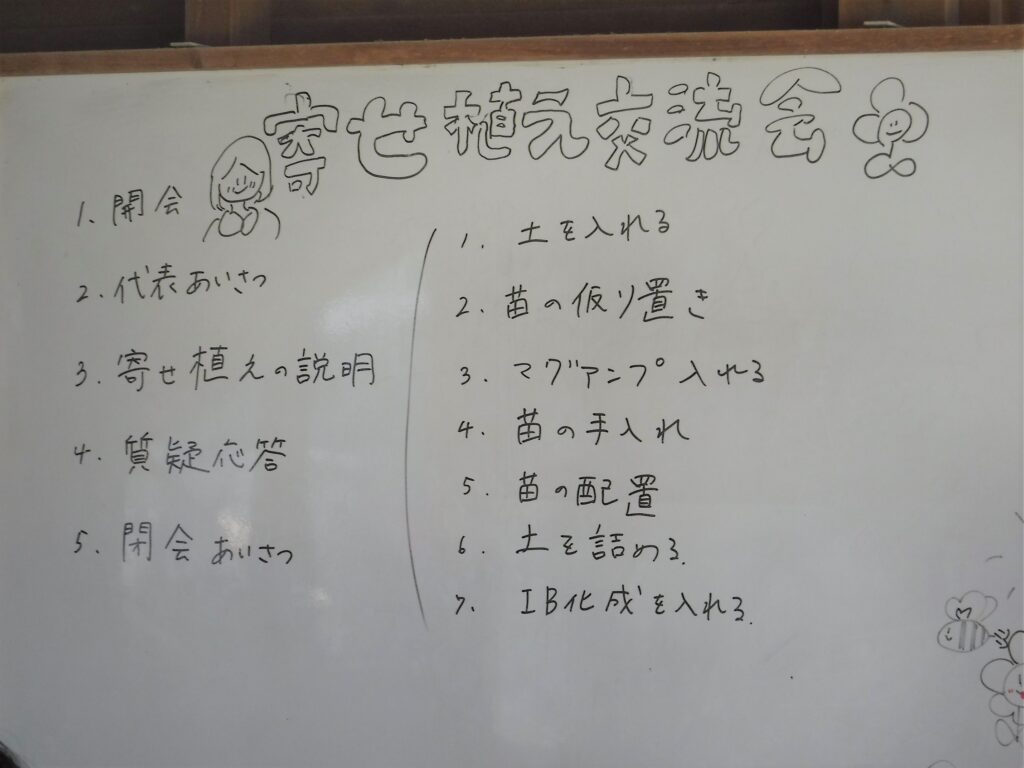 寄せ植え交流会
1. 開会
2. 代表あいさつ
3. 寄せ植えの説明
4. 質疑応答
5. 閉会あいさつ
1. 土を入れる
2. 苗の仮り置き
3. マグアンプ入れる
4. 苗の手入れ
5. 苗の配置
6. 土を詰める.
7. IB化成を入れる.